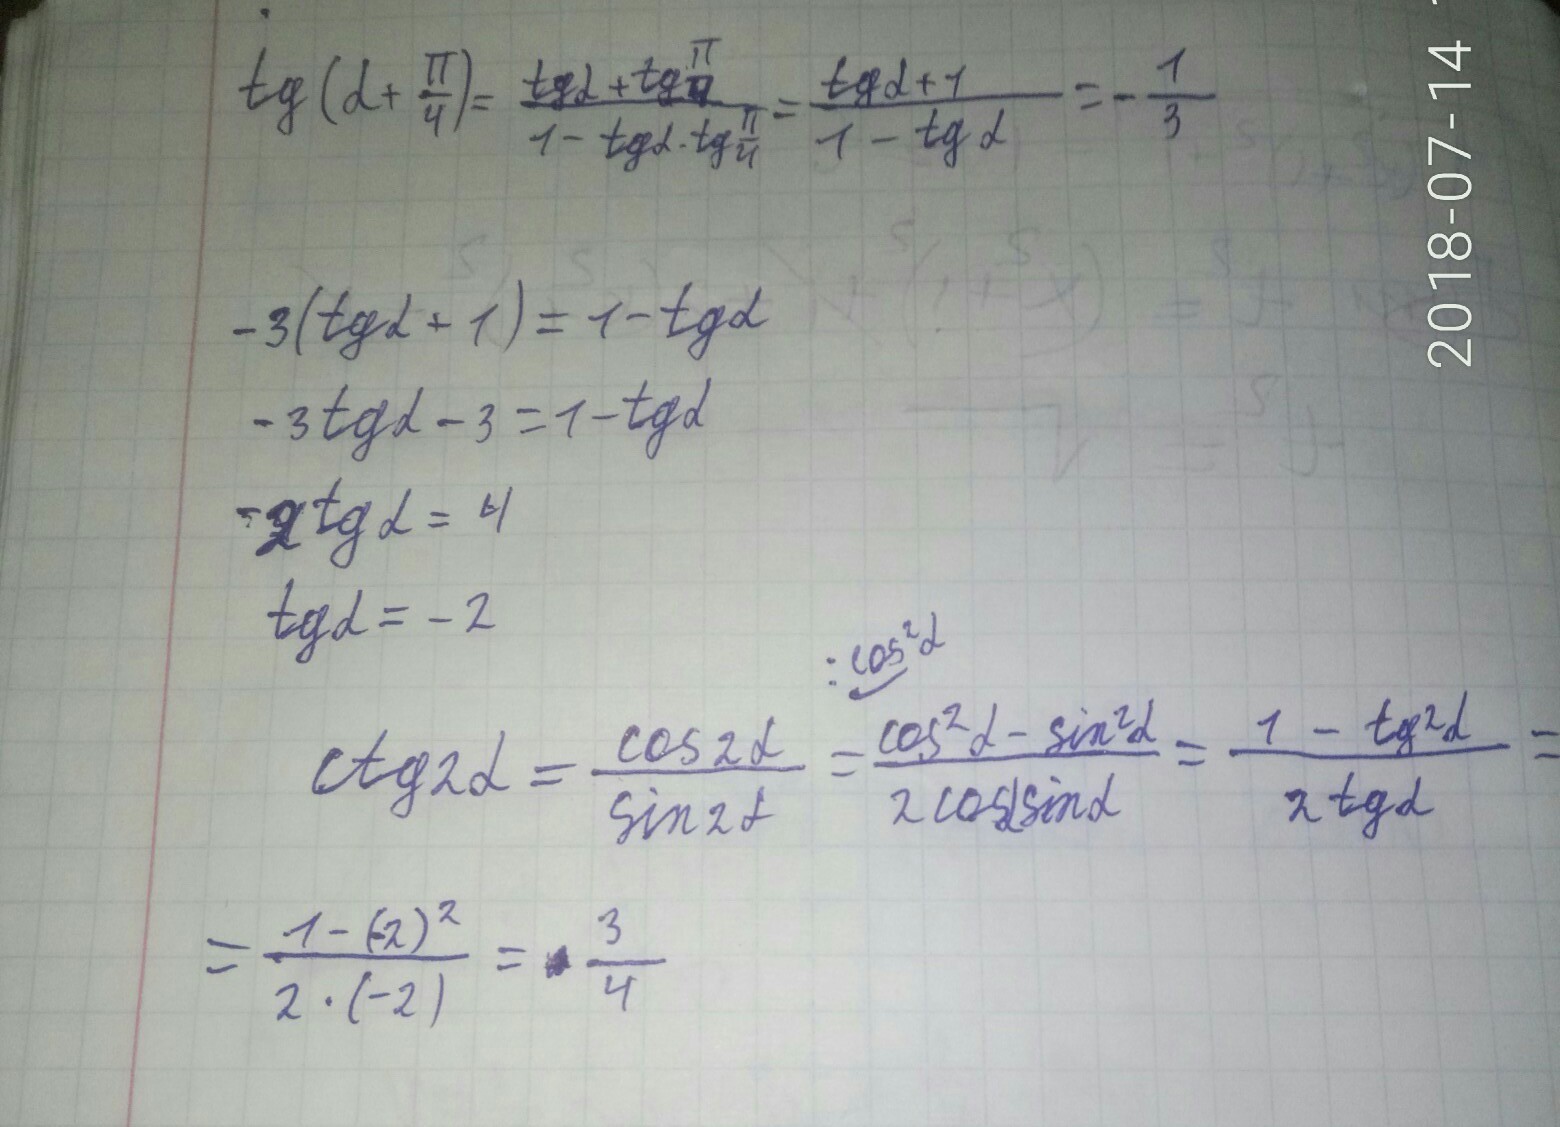 tg(α + π/4) = (tgα + tg π/4)/(1 - tgα · tg π/4) = (tgα + 1)/(1 - tgα) = - 1/3
-3(tgα + 1) = 1 - tgα
-3tgα - 3 = 1 - tgα
-2tgα = 4
tgα = -2
: cos²α
ctg2α = cos2α/sin2α = (cos²α - sin²α)/(2cosαsinα) = (1 - tg²α)/(2tgα) =
= (1 - (-2)²)/(2 · (-2)) = 3/4
2018-07-14